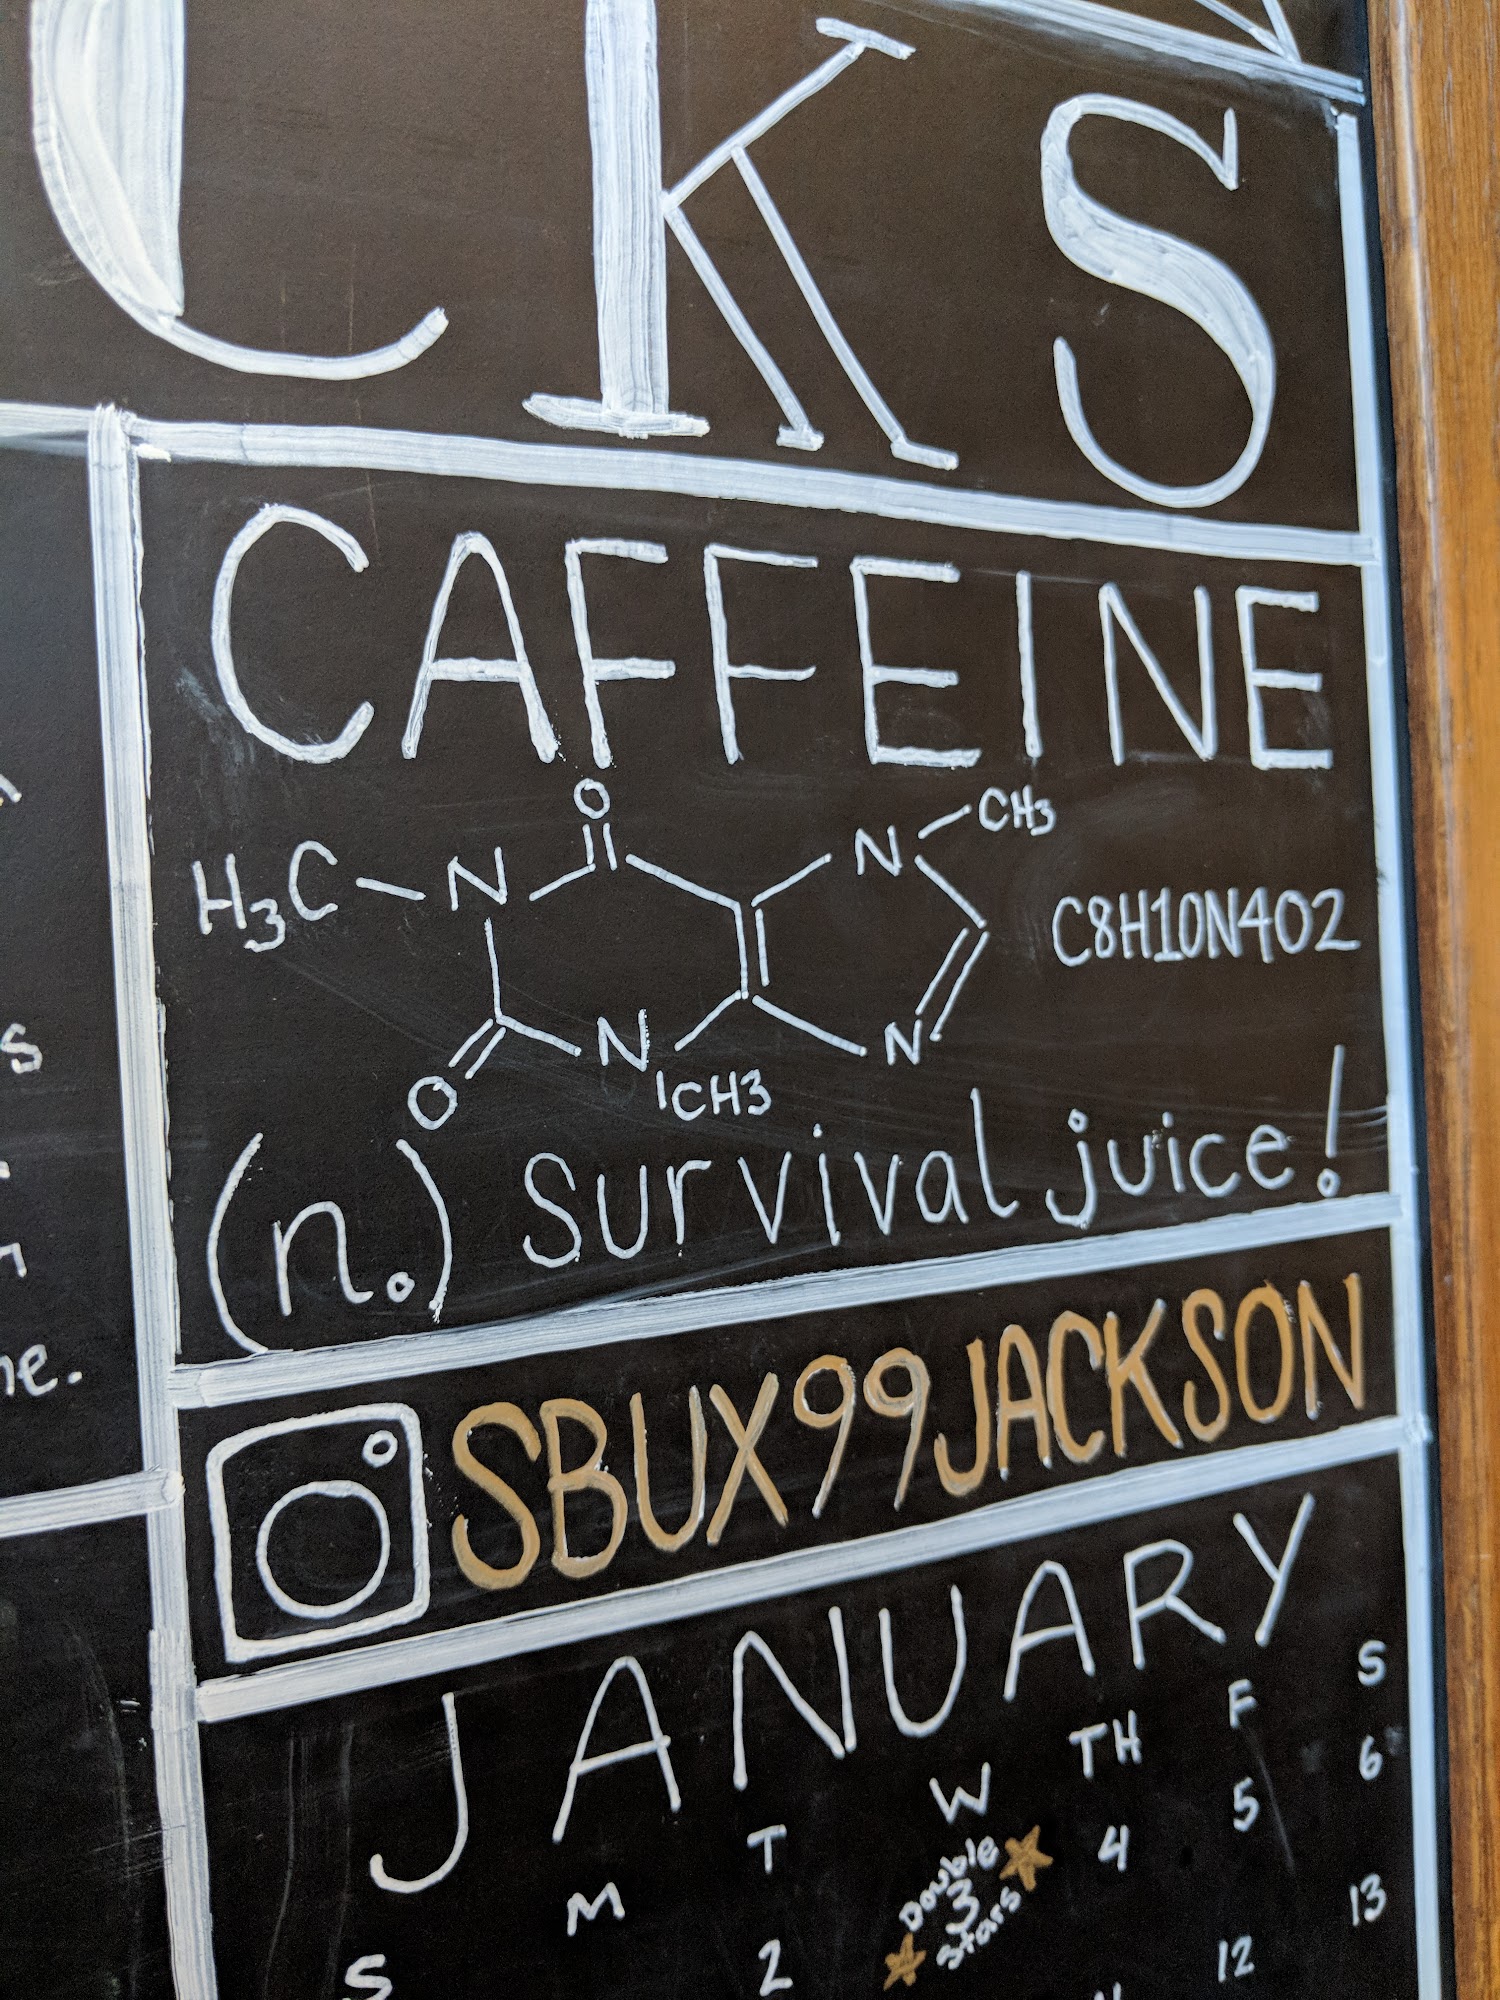 CKS
CAFFEINE
O
H3C N N CH3
C8H10N4O2
O N N
CH3
(n.) Survival juice!
s
ne.
SBUX99JACKSON
JANUARY
S M T W TH F S
2 Double 3 Stars 4 5 6
12 13